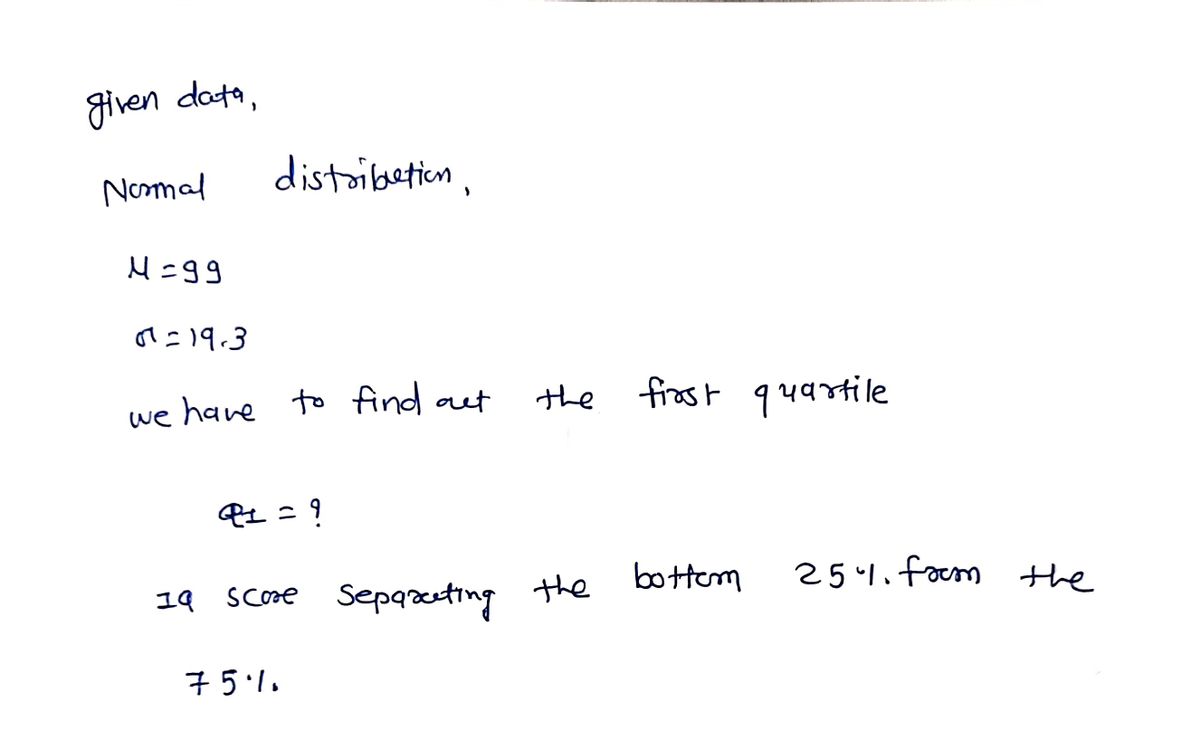 given data,
Normal distribution,
μ = 99
σ = 19.3
we have to find out the first quartile
Q1 = ?
IQ score separating the bottom 25% from the
75%.